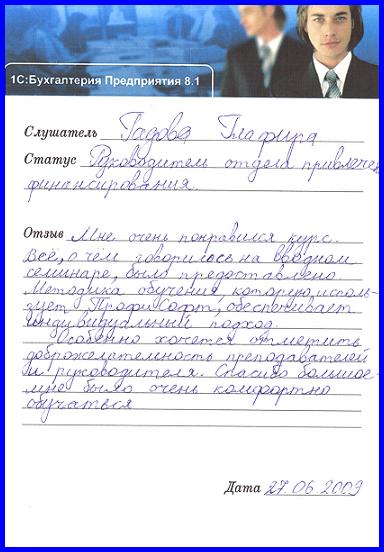 1С:Бухгалтерия Предприятия 8.1
Слушатель Гадова Глафира
Статус Руководителем отдела привлечен
финансирования.
Отзыв Мне очень понравился курс.
Всё, о чём говорилось на вводном
семинаре, было предоставлено.
Методика обучения, которую исполь-
зует ПрофиСофт, обеспечивает
индивидуальный подход.
Особенно хочется отметить
доброжелательность преподавателей
и руководителя. Спасибо большое-
мне было очень комфортно
обучаться
Дата 27.06.2009